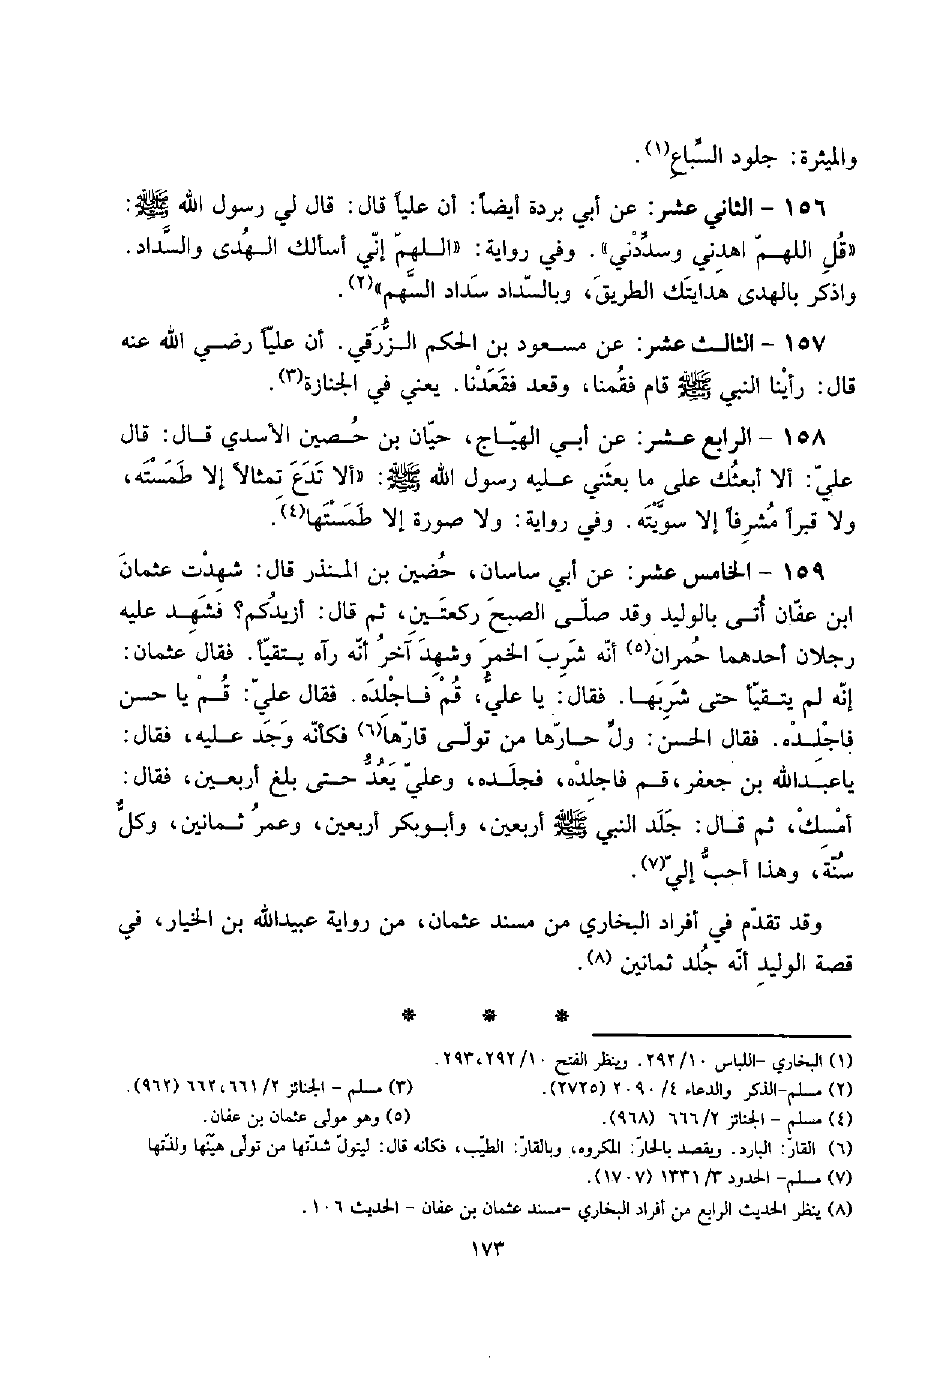 والميثرة: جلود السِّباعِ(١).
١٥٦ - الثاني عشر: عن أبي بردة أيضاً: أن علياً قال: قال لي رسول الله ﷺ:
«قُلِ اللهمّ اهدِني وسدِّدْني». وفي رواية: «اللهمّ إنّي أسألك الهُدى والسَّداد.
واذكر بالهدى هدايتَك الطريقَ، وبالسَّداد سَداد السَّهم»(٢).
١٥٧ - الثالث عشر: عن مسعود بن الحكم الزُّرَقي. أن عليّاً رضي الله عنه
قال: رأيْنا النبي ﷺ قام فقُمنا، وقعد فقَعَدْنا. يعني في الجنازة(٣).
١٥٨ - الرابع عشر: عن أبي الهيّاج، حيّان بن حُصين الأسدي قال: قال
عليّ: ألا أبعثُك على ما بعثَني عليه رسول الله ﷺ: «ألا تَدَعَ تمثالاً إلا طَمَسْتَه،
ولا قبراً مُشرِفاً إلا سوَّيْتَه. وفي رواية: ولا صورة إلا طَمَسْتَها(٤).
١٥٩ - الخامس عشر: عن أبي ساسان، حُضين بن المنذر قال: شهدْت عثمانَ
ابن عفّان أُتى بالوليد وقد صلّى الصبحَ ركعتَين، ثم قال: أزيدُكم؟ فشَهِد عليه
رجلان أحدهما حُمران(٥) أنّه شَرِبَ الخمرَ وشهِدَ آخرُ أنّه رآه يتقيّأ. فقال عثمان:
إنّه لم يتقيّأ حتى شرَبِها. فقال: يا عليُّ، قُمْ فاجْلِدَه. فقال عليّ: قُمْ يا حسن
فاجْلِدْه. فقال الحسن: ولِّ حارّها من تولّى قارّها(٦) فكأنّه وَجَد عليه، فقال:
ياعبدالله بن جعفر، قم فاجلِدْه، فجلَده، وعليّ يَعُدُّ حتى بلغ أربعين، فقال:
أمْسِكْ، ثم قال: جَلَد النبي ﷺ أربعين، وأبوبكر أربعين، وعمرُ ثمانين، وكلٌّ
سُنّة، وهذا أحبُّ إليّ(٧).
وقد تقدّم في أفراد البخاري من مسند عثمان، من رواية عبيدالله بن الخيار، في
قصة الوليدِ أنّه جُلد ثمانين (٨).
* * *
(١) البخاري -اللباس ٢٩٢/١٠. وينظر الفتح ٢٩٣،٢٩٢/١٠.
(٢) مسلم-الذكر والدعاء ٢٠٩٠/٤ (٢٧٢٥). (٣) مسلم - الجنائز ٦٦٢،٦٦١/٢ (٩٦٢).
(٤) مسلم - الجنائز ٦٦٦/٢ (٩٦٨). (٥) وهو مولى عثمان بن عفان.
(٦) القارّ: البارد. ويقصد بالحارّ: المكروه، وبالقارّ: الطيّب، فكأنه قال: ليتولّ شدّتها من تولى هيّنها ولذّتها
(٧) مسلم- الحدود ١٣٣١/٣ (١٧٠٧).
(٨) ينظر الحديث الرابع من أفراد البخاري -مسند عثمان بن عفان - الحديث ١٠٦.
١٧٣